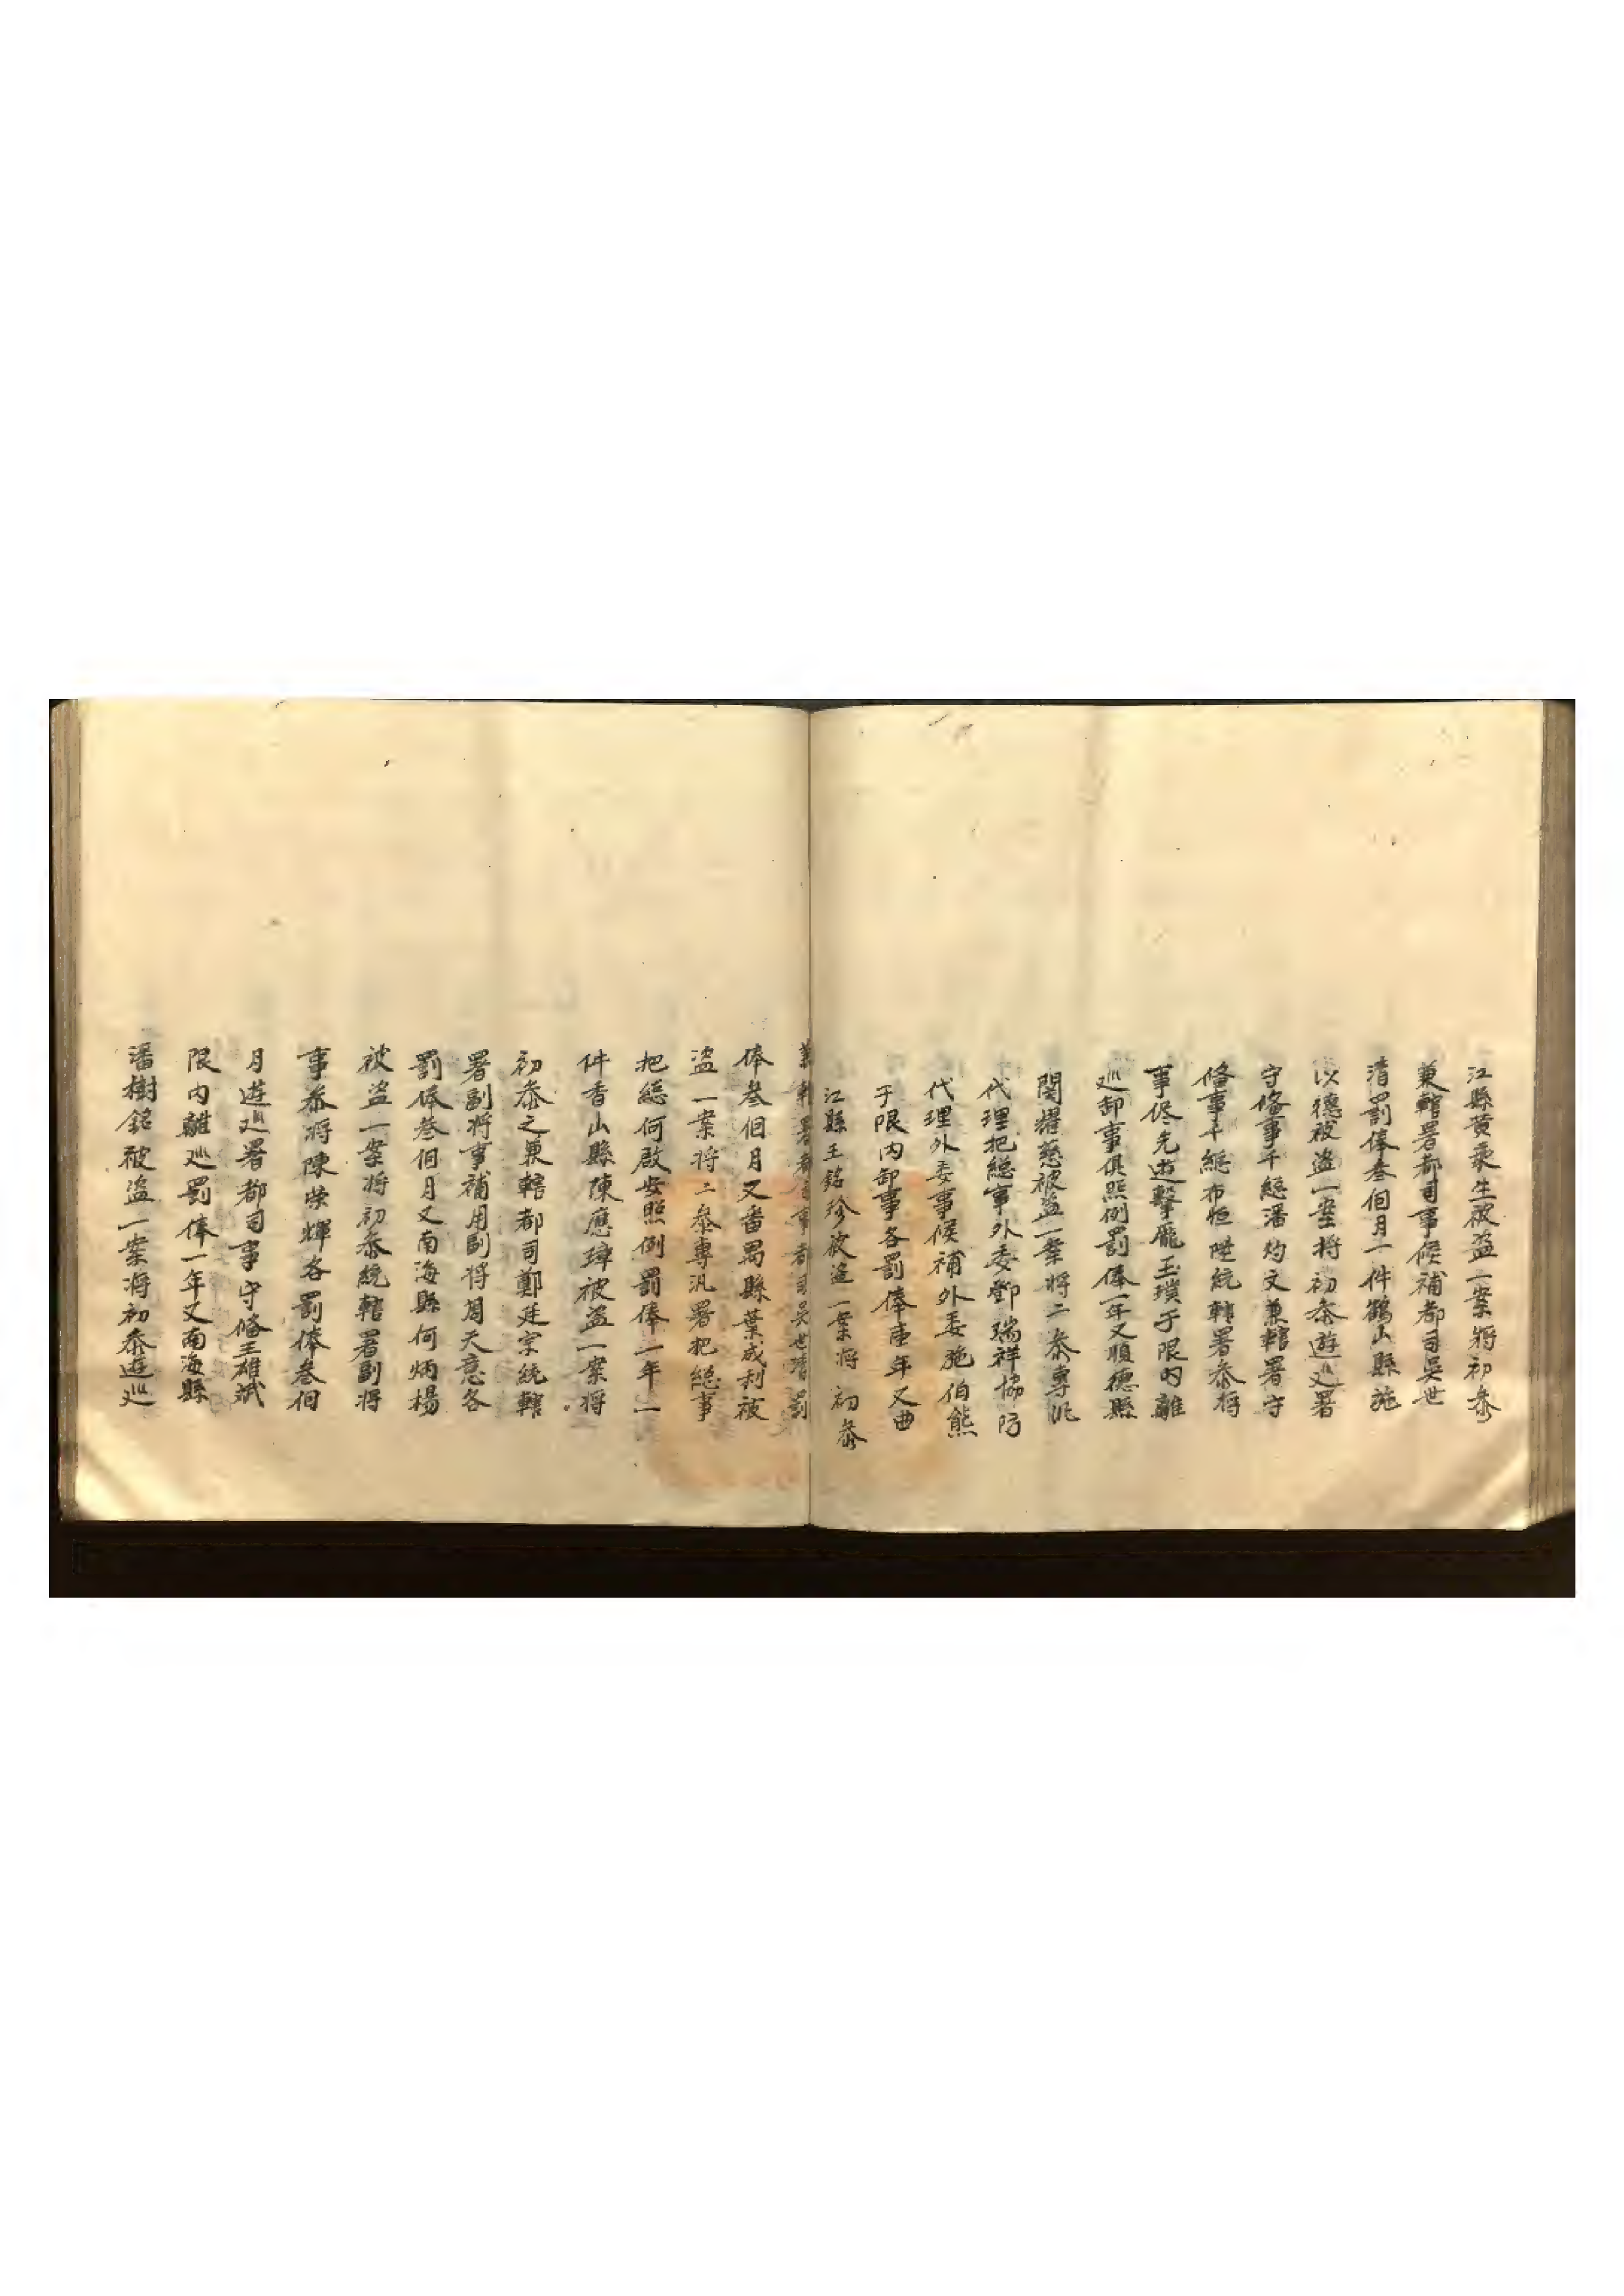 江縣黄秉生被盗一案將初叅
兼轄署都司事候補都司吳世
清罰俸叁個月一件鶴山縣施
以德被盗一案將初叅遊巡署
守俻事千總潘灼文兼轄署守
俻事千總布恒陞統轄署叅將
事侭先遊擊龐玉瓚于限内離
巡卸事俱照例罰俸一年又順德縣
關耀慈被盗一案將二叅專汛
代理把總事外委鄧瑞祥協防
代理外委事候補外委施伯熊
于限内卸事各罰俸壹年又曲
江縣王銘珍被盗一案將初叅
兼轄署都司事都司吳世清罰
俸叁個月又番禺縣葉成利被
盗一案將二叅專汛署把總事
把總何啟安照例罰俸一年一
件香山縣陳應璋被盗一案將
初叅之兼轄都司鄭廷宗統轄
署副將事補用副將周天意各
罰俸叁個月又南海縣何炳楊
被盗一案將初叅統轄署副將
事叅將陳榮輝各罰俸叁個
月遊巡署都司事守俻王雄斌
限内離巡罰俸一年又南海縣
潘樹銘被盗一案將初叅遊巡